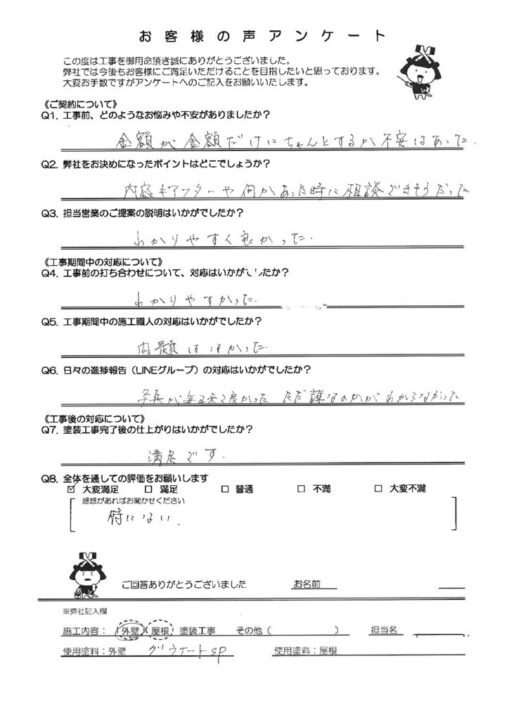 お客様の声アンケート
この度は工事を御用命頂き誠にありがとうございました。
弊社では今後もお客様にご満足いただけることを目指したいと思っております。
大変お手数ですがアンケートへのご記入をお願いいたします。
《ご契約について》
Q1. 工事前、どのようなお悩みや不安がありましたか?
金額が金額だけにちゃんとするか不安はあった
Q2. 弊社をお決めになったポイントはどこでしょうか?
内容もアフターや何かあった時に相談できそうだった
Q3. 担当営業のご提案の説明はいかがでしたか?
わかりやすく良かった.
《工事期間中の対応について》
Q4. 工事前の打ち合わせについて、対応はいかがでしたか?
わかりやすかった.
Q5. 工事期間中の施工職人の対応はいかがでしたか?
問題はなかった
Q6. 日々の進捗報告(LINEグループ)の対応はいかがでしたか?
写真が 良かった ただ誰なのかがわからなかった
《工事後の対応について》
Q7. 塗装工事完了後の仕上がりはいかがでしたか?
満足です.
Q8. 全体を通しての評価をお願いします
☑ 大変満足 □ 満足 □ 普通 □ 不満 □ 大変不満
感想があればお聞かせください
特にない.
ご回答ありがとうございました お名前
※弊社記入欄
施工内容: 外壁 屋根 塗装工事 その他( ) 担当名
使用塗料:外壁 SP 使用塗料:屋根